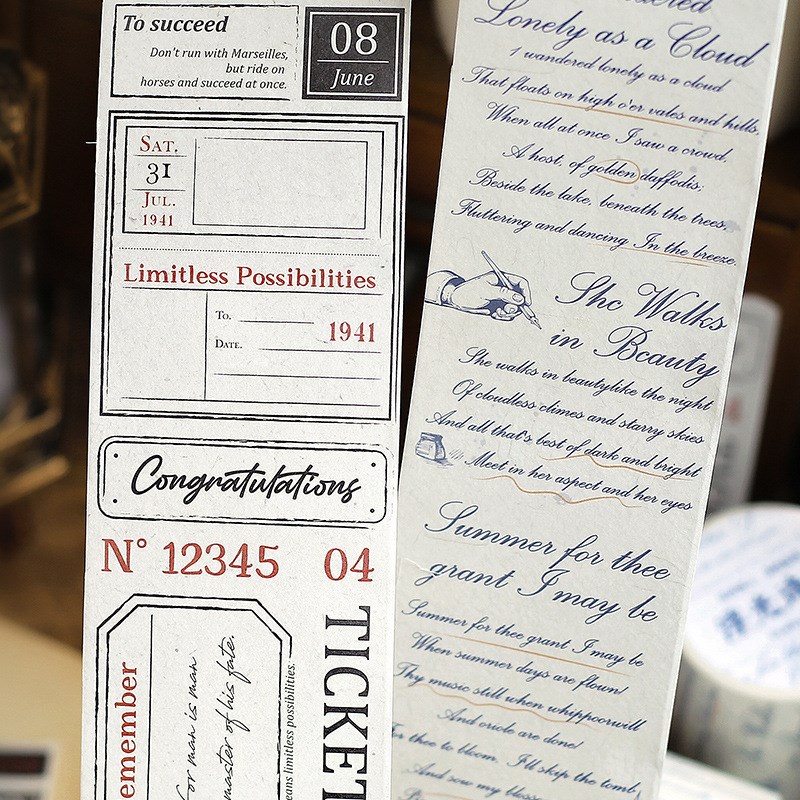 To succeed
Don't run with Marseilles,
but ride on
horses and succeed at once.
08
June
SAT.
31
JUL.
1941
Limitless Possibilities
TO.
DATE.
1941
Congratulations
N° 12345 04
TICKET
emember
for man is man
master of his fate.
eans limitless possibilities.
Lonely as a Cloud
I wandered lonely as a cloud
That floats on high o'er vales and hills,
When all at once I saw a crowd,
A host, of golden daffodis;
Beside the lake, beneath the trees,
Fluttering and dancing In the breeze.
She Walks
in Beauty
She walks in beautylike the night
Of cloudless climes and starry skies
And all that's best of dark and bright
Meet in her aspect and her eyes
Summer for thee
grant I may be
Summer for thee grant I may be
When summer days are flown!
Thy music still when whippoorwill
And oriole are done!
For thee to bloom, I'll skip the tomb
And sow my